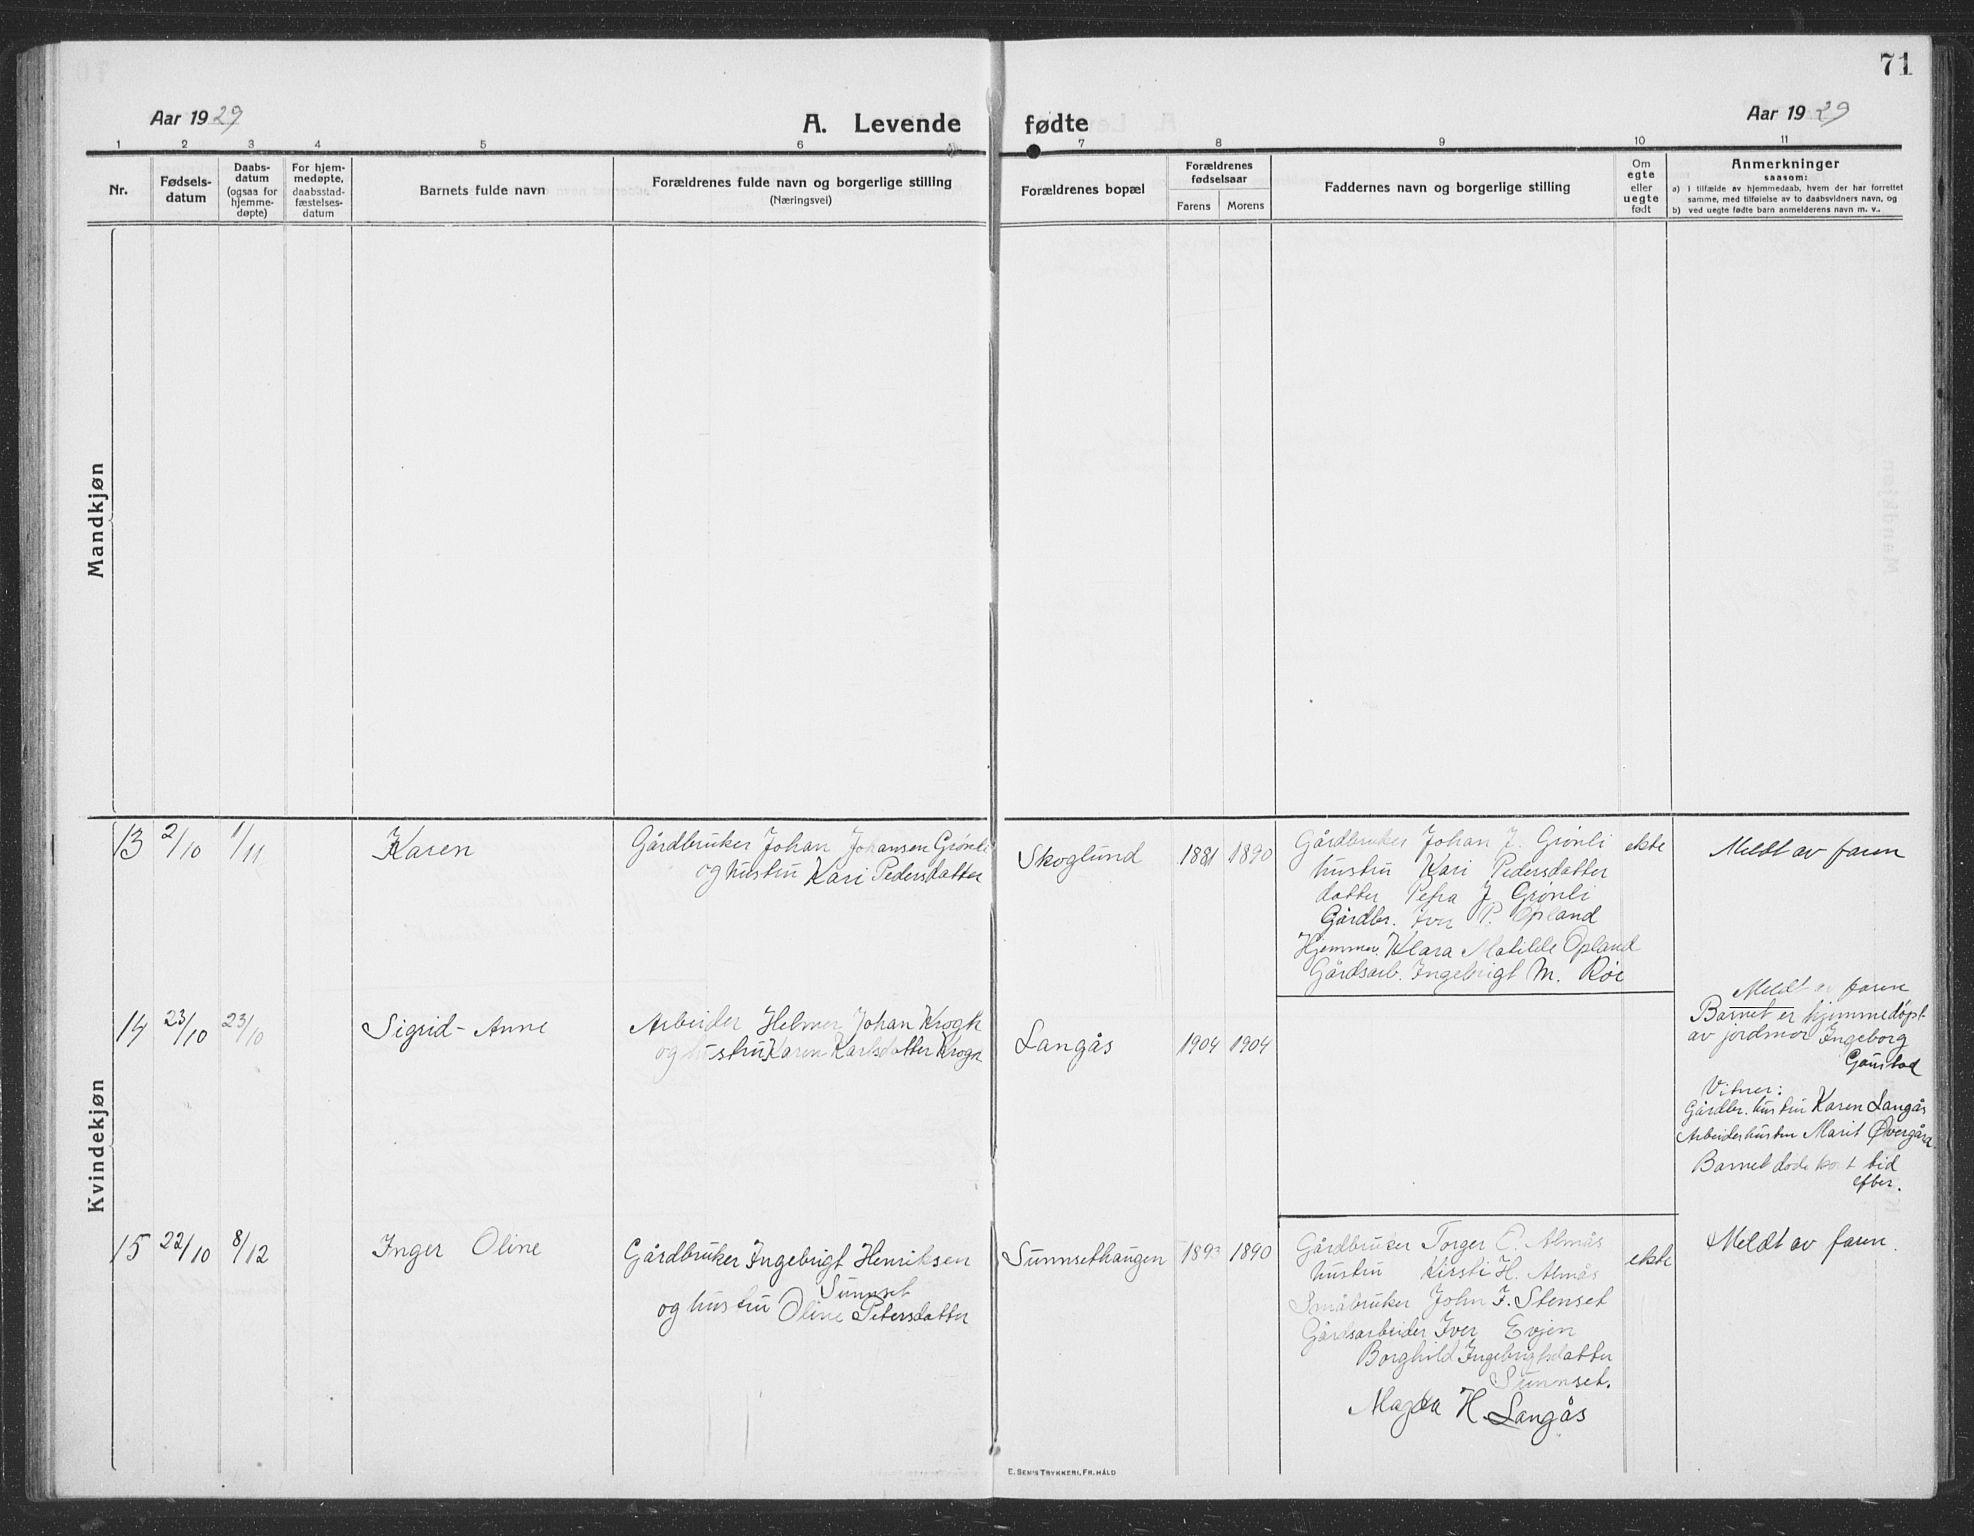 71
Aar 1929
A. Levende fødte
Aar 1929
1 2 3 4 5 6 7 8 9 10 11
Nr.
Fødsels-
datum
Daabs-
datum
(ogsaa for
hjemme-
døpte)
For hjem-
medøpte,
daabsstad-
fæstelses-
datum
Barnets fulde navn
Forældrenes fulde navn og borgerlige stilling
(Næringsvei)
Forældrenes bopæl
Forældrenes
fødselsaar
Farens Morens
Faddernes navn og borgerlige stilling
Om
egte
eller
uegte
født
Anmerkninger
saasom:
a) i tilfælde av hjemmedaab, hvem der har forrettet
samme, med tilføielse av to daabsvidners navn, og
b) ved uegte fødte barn anmelderens navn m. v..
Mandkjøn
Kvindekjøn
13 2/10 1/11 Karen
Gårdbruker Johan Johansen Grønli
og hustru Kari Pedersdatter
Skoglund 1881 1890
Gårdbruker Johan J. Grønli
hustru Kari Pedersdatter
datter Petra J Grønli
Gårdbr. Iver P. Opland
Hjemmev. Klara Matilde Opland
Gårdsarb. Ingebrigt M. Røe
ekte
Meldt av faren
14 23/10 23/10 Sigrid-Anne
Arbeider Helmer Johan Krogh
og hustru Karen Karlsdatter Krogh
Langås 1904 1904
Meldt av faren
Barnet er hjemmedøpt
av jordmor Ingeborg
Gaustad
Vitner:
Gårdbr. hustru Karen Langås
Arbeiderhustru Marit Øvergård
Barnet døde kort tid
efter.
15 22/10 8/12 Inger Oline
Gårdbruker Ingebrigt Henriksen
Sunnset
og hustru Oline Petersdatter
Sunnsethaugen 1893 1890
Gårdbruker Torger O. Almås
hustru Kirsti H. Almås
Småbruker John F. Stenset
Gårdsarbeider Iver Evjen
Borghild Ingebrigtsdatter
Sunnset.
Magda H. Langås
ekte
Meldt av faren.
E. SEM'S TRYKKERI, FR.HALD